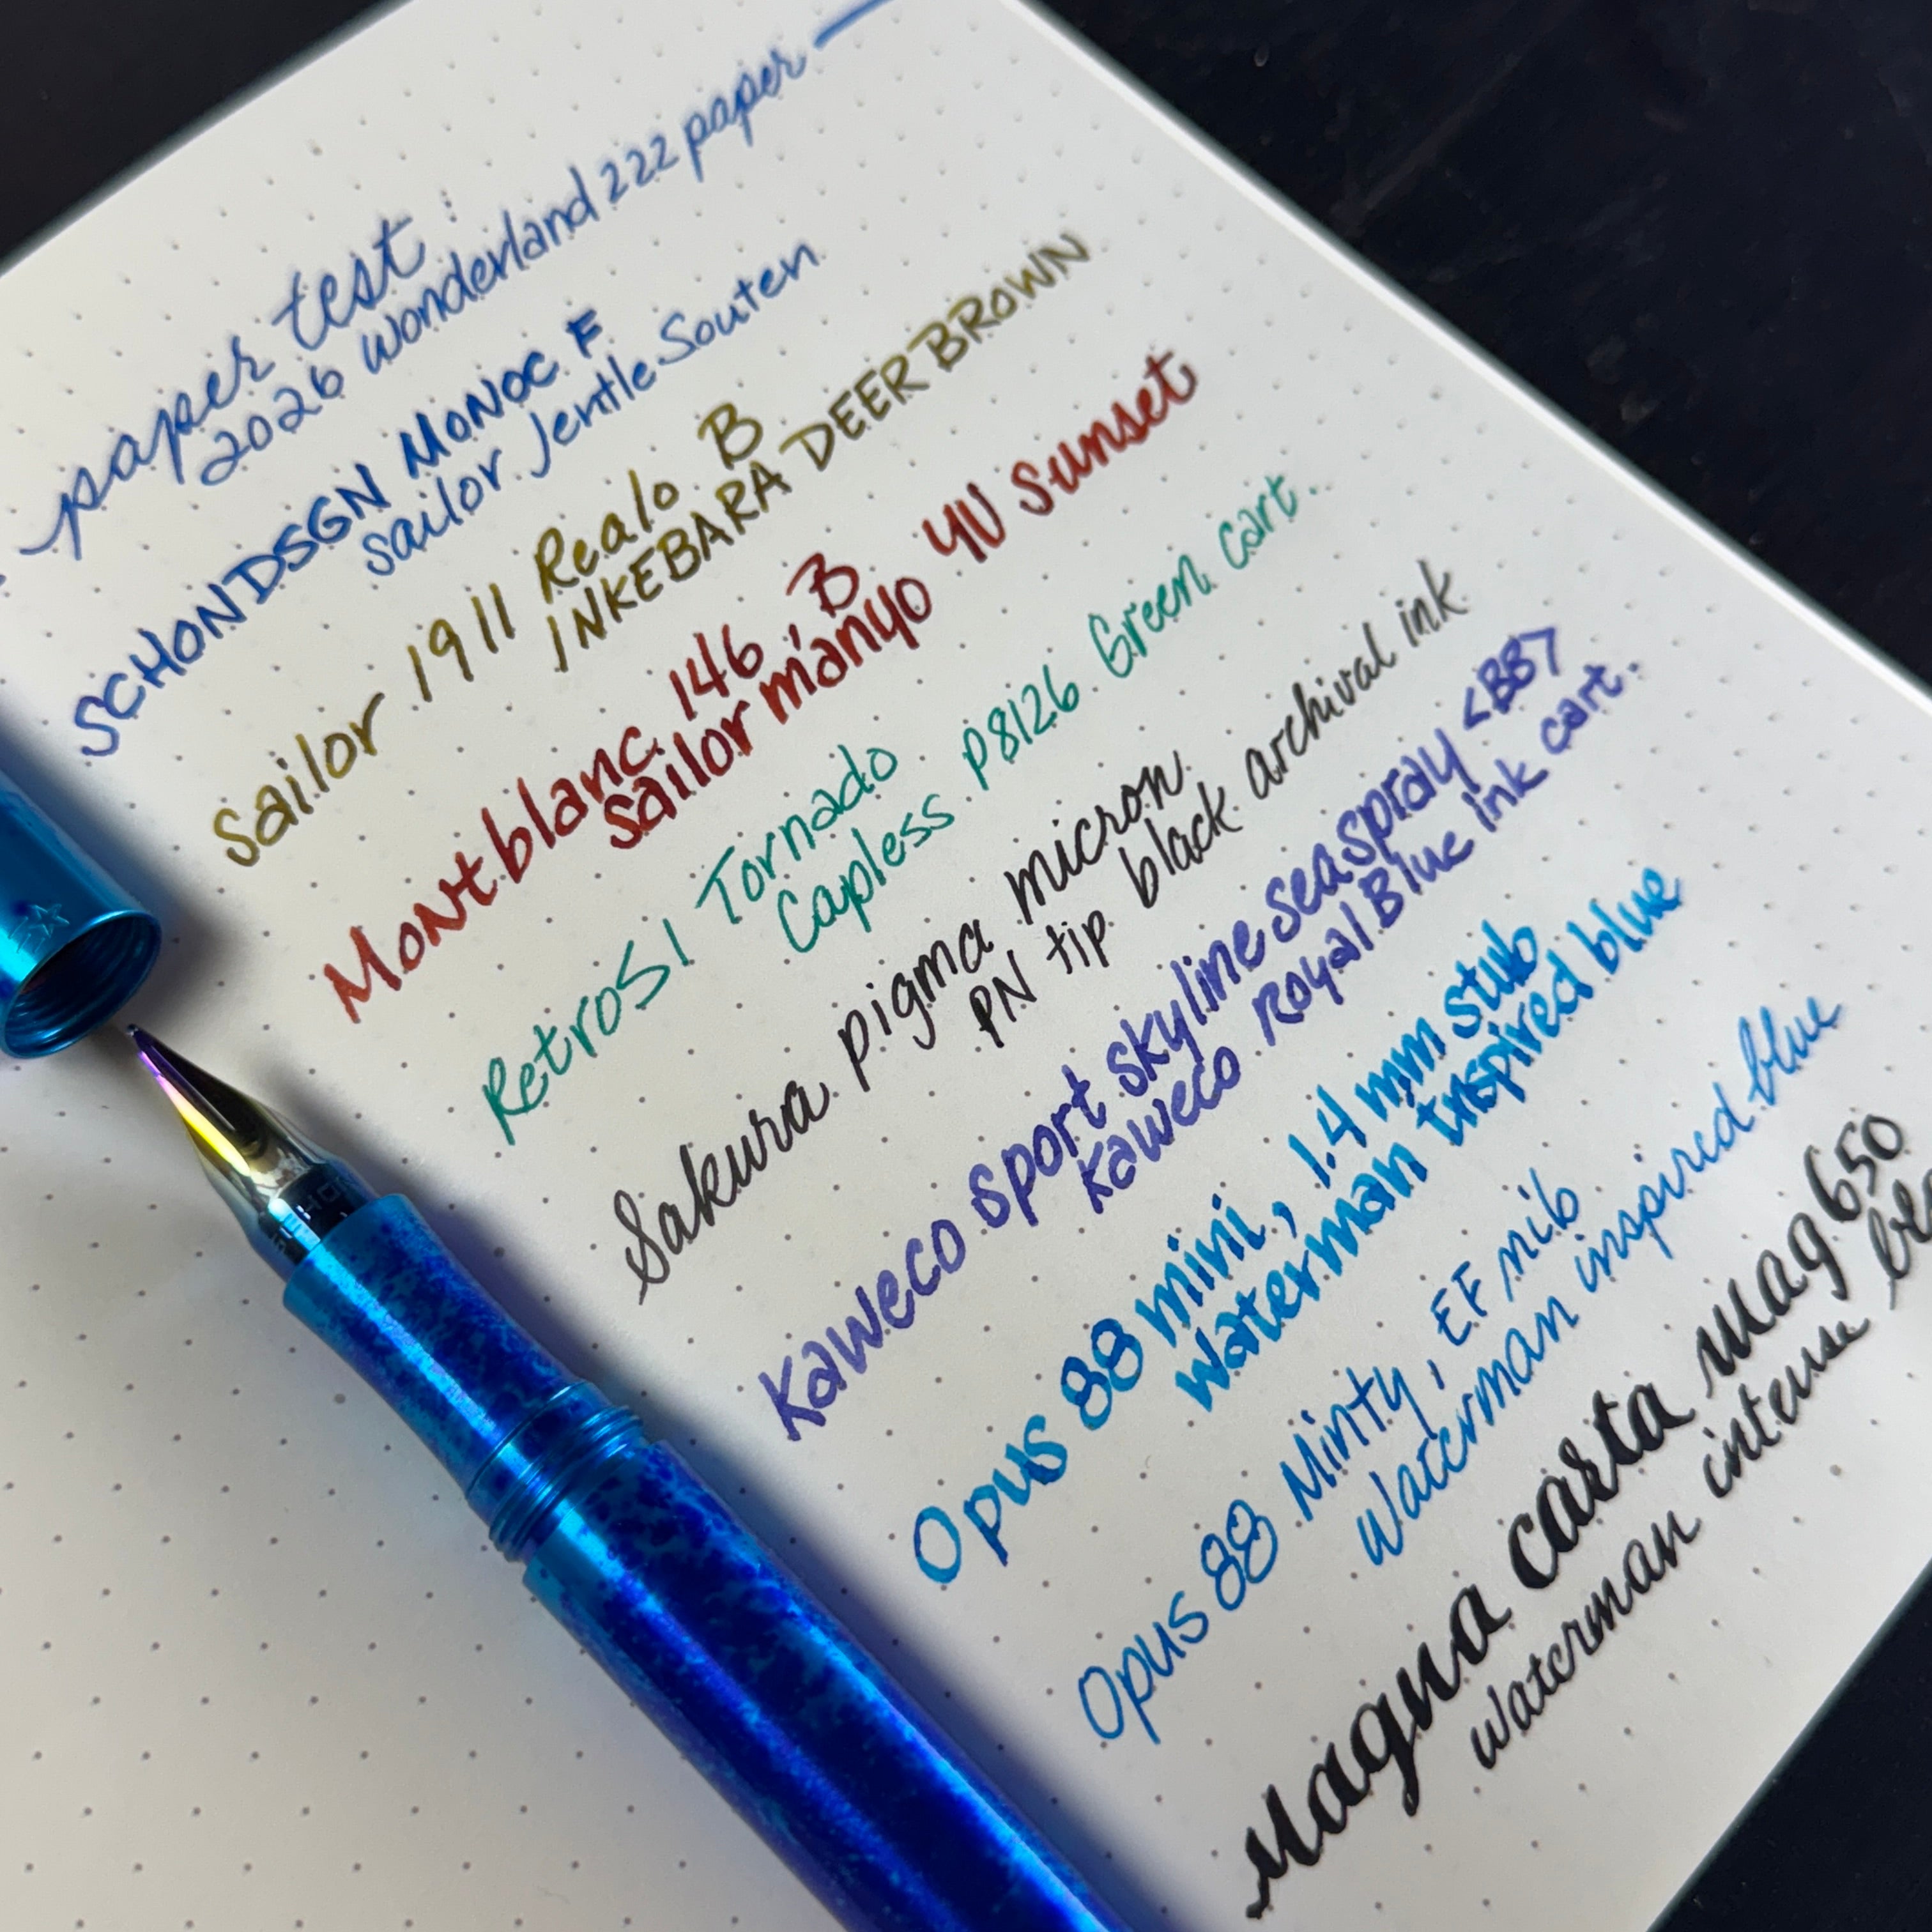 paper test:
2026 Wonderland 222 paper —
SCHONDSGN MONOC F
Sailor Jentle Souten
Sailor 1911 Realo B
INKEBARA DEER BROWN
Montblanc 146 B
Sailor manyo
Retro51 Tornado
Capless P8126 Green cart.
Sakura pigma micron
PN tip black archival ink
Kaweco sport skyline seaspray <BB>
Kaweco Royal Blue ink cart.
Opus 88 mini, 1.4 mm stub
Waterman Inspired blue
Opus 88 Minty, EF nib
Waterman inspired blue
Magna carta mag 650
Waterman intense